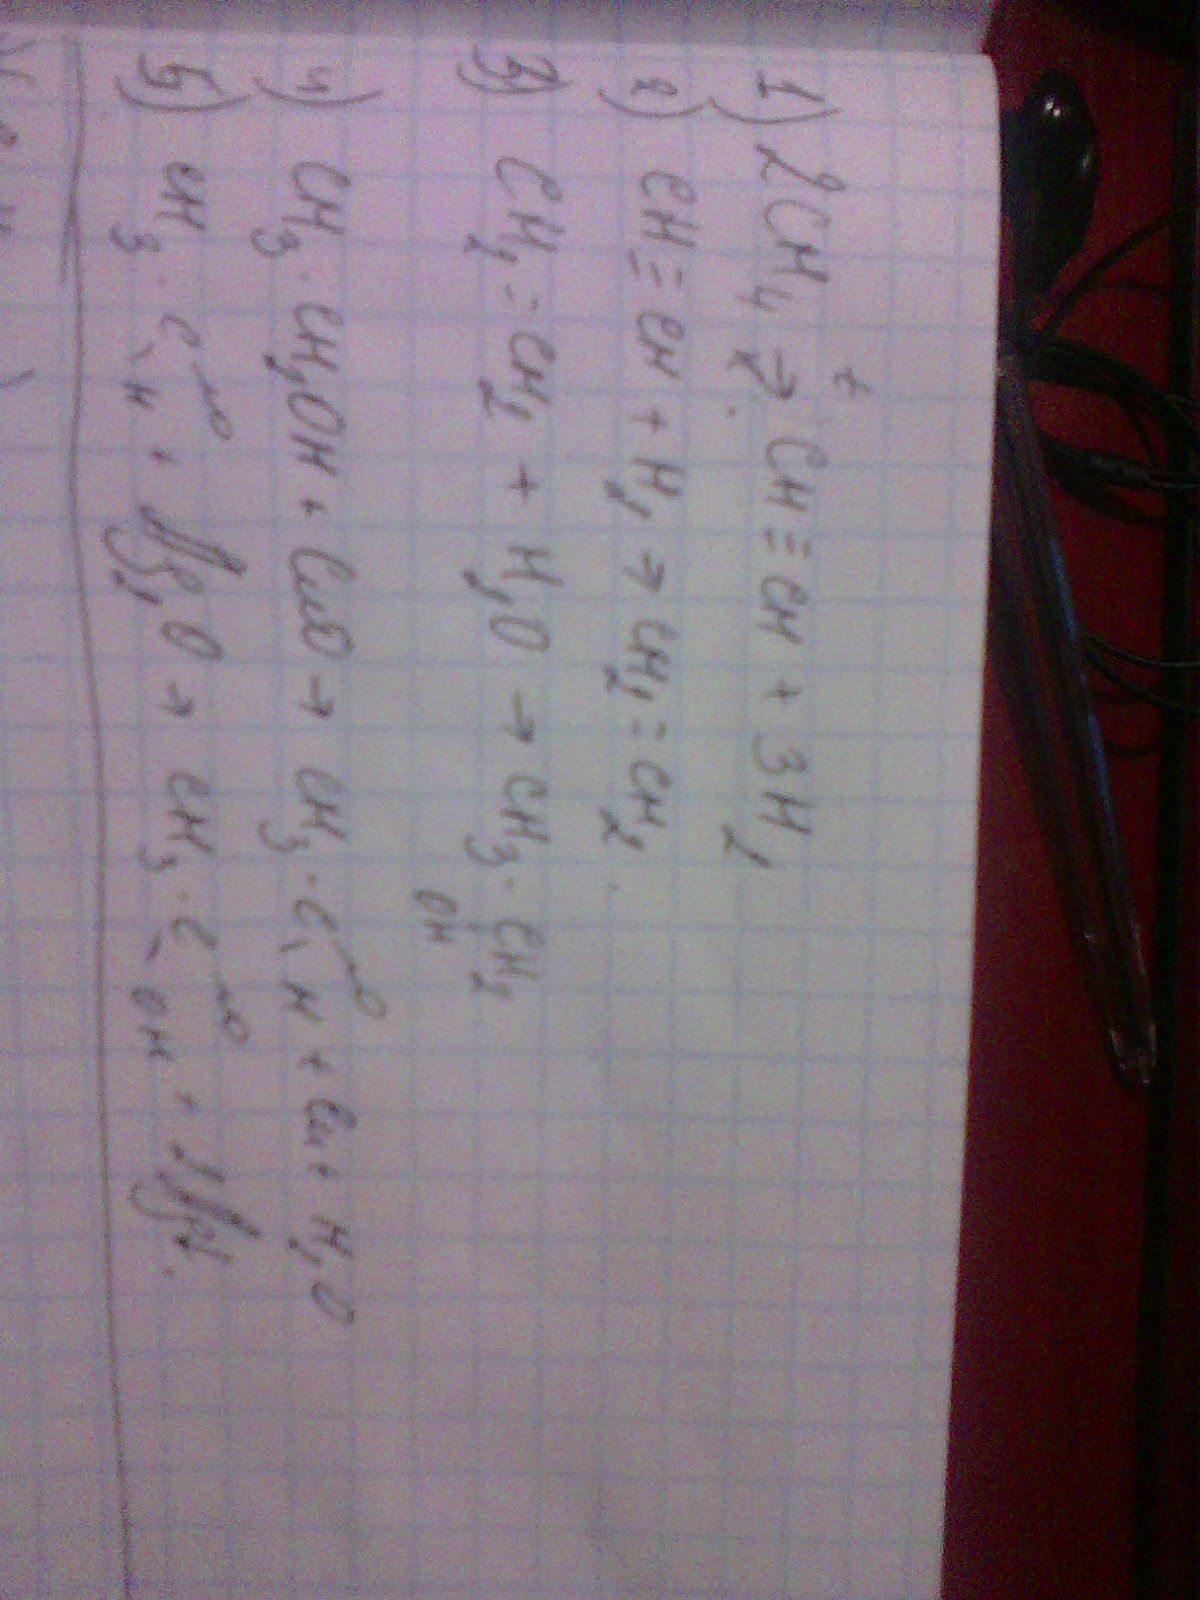 1) 2CH₄ →ᵗ CH≡CH + 3H₂
2) CH≡CH + H₂ → CH₂=CH₂.
3) CH₂=CH₂ + H₂O → CH₃-CH₂
OH
4) CH₃-CH₂OH + CuO → CH₃-C=O\H + Cu + H₂O
5) CH₃-C=O\H + Ag₂O → CH₃-C=O\OH + 2Ag↓.